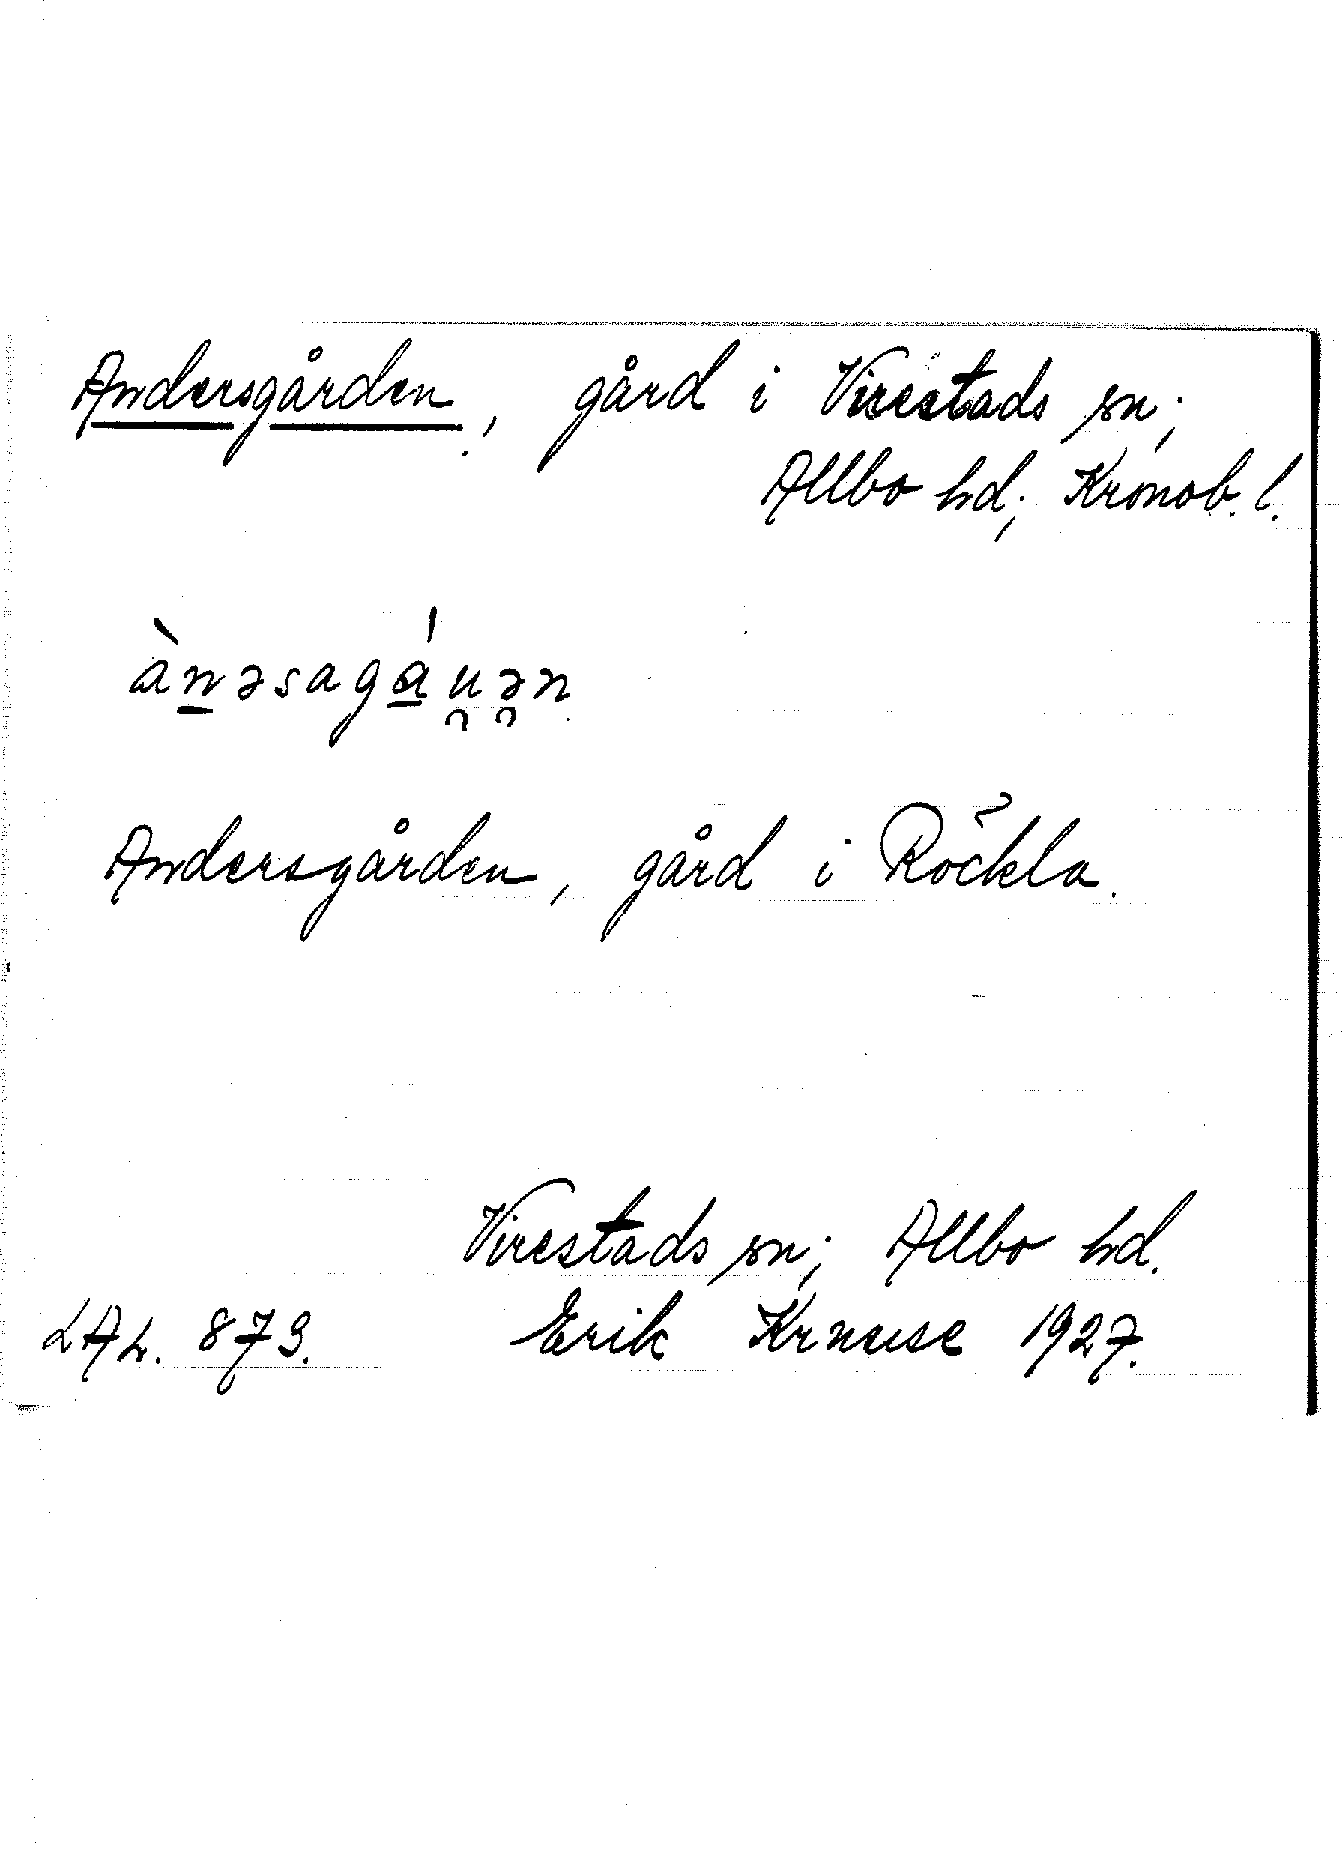 Andersgården, gård i Virestads sn;
Allbo hd; Kronob. l.
àn̲əsagá̲u̯ə̯n
Andersgården, gård i Röckla.
Virestads sn; Allbo hd.
LAL. 873. Erik Knause 1927.